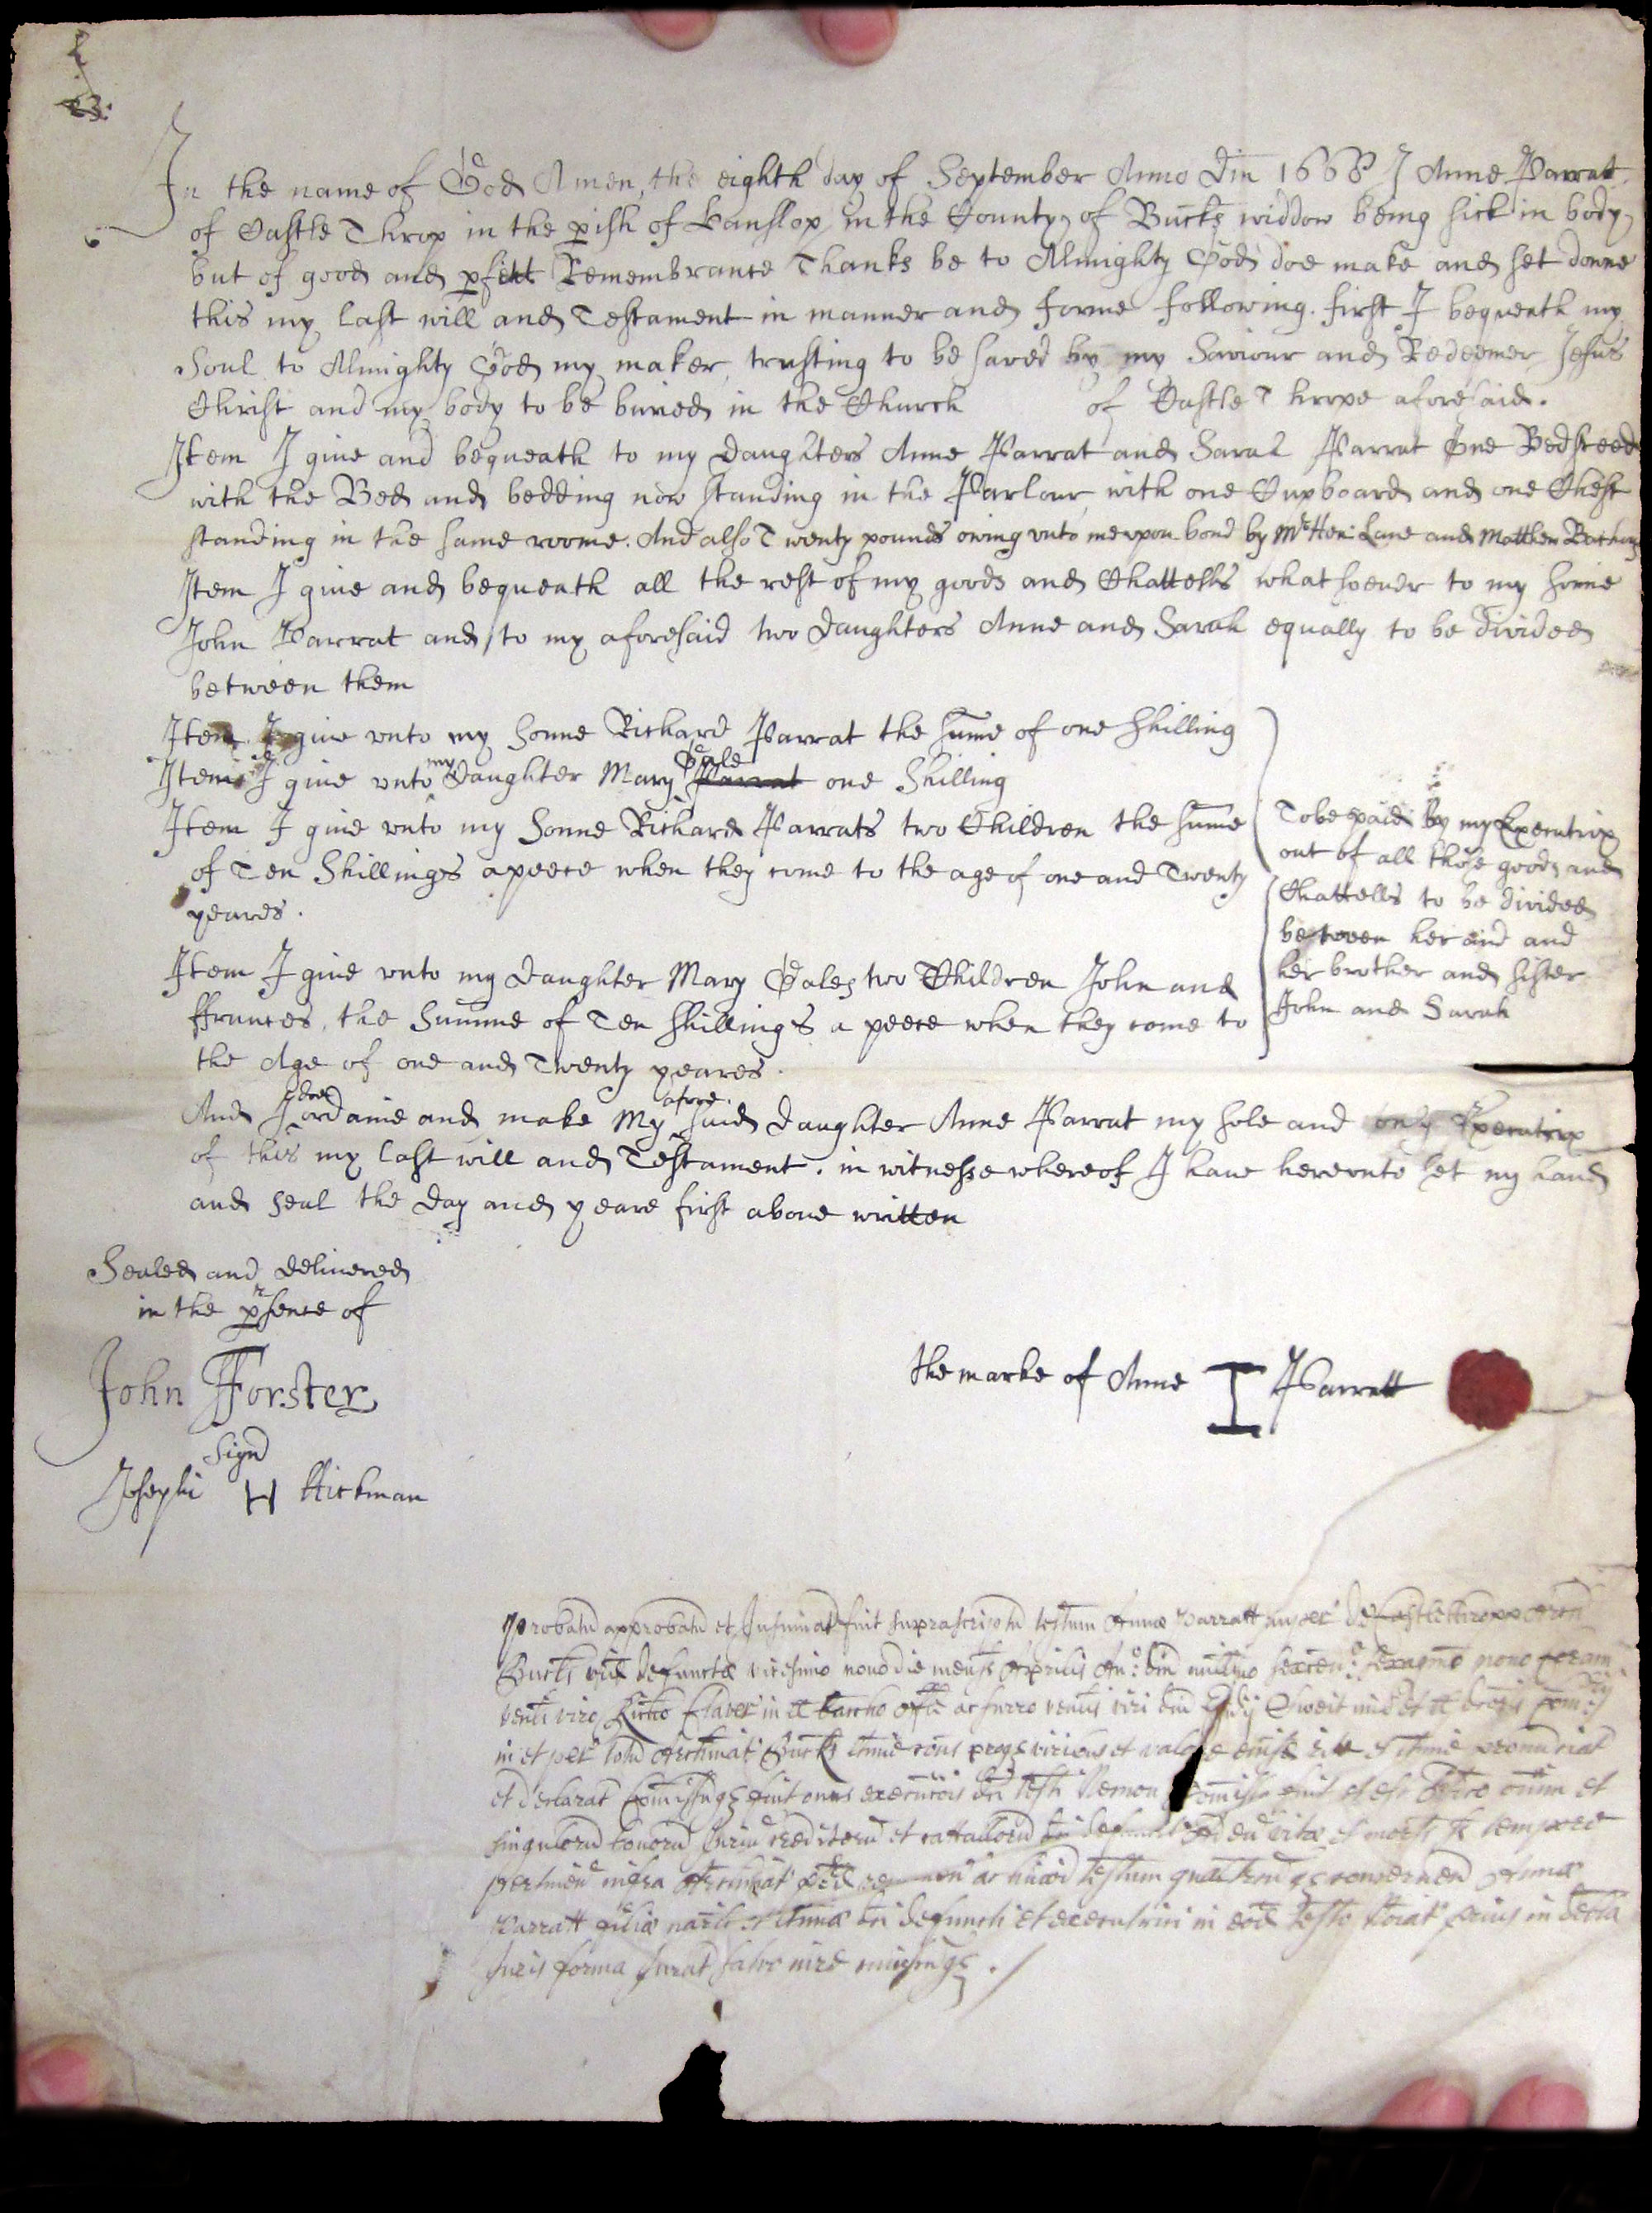 23.
In the name of God Amen, the eighth day of September Anno Dm̄ 1668 I Anne Parrat
of Castle Throp in the pish of Hanslop in the County of Bucks widdow being sick in body
but of good and pfect Remembrance Thanks be to Almighty God doe make and set downe
this my last will and Testament in manner and forme following. first I bequeath my
Soul to Almighty God my maker, trusting to be saved by my Saviour and Redeemer Jesus
Christ and my body to be buried in the Church of Castle Thrope aforesaid.
Item I giue and bequeath to my Daughters Anne Parrat and Sarah Parrat One Bedsteed
with the Bed and bedding now standing in the Parlour with one Cupboard and one Chest
standing in the same roome. And also Twenty pounds owing vnto me vpon bond by Mr Hen: Lane and Matthew
Item I giue and bequeath all the rest of my goods and Chattells whatsoeuer to my sonne
John Parrat and to my aforesaid two Daughters Anne and Sarah equally to be divided
between them
Item I giue vnto my Sonne Richard Parrat the sume of one shilling
Item I giue vnto my Daughter Mary Parrat Gale one Shilling
Item I giue vnto my Sonne Richard Parrats two Children the sume
of Ten Shillings apeece when they come to the age of one and Twenty
yeares.
Item I giue vnto my Daughter Mary Gales two Children John and
ffrances, the Summe of Ten shillings a peece when they come to
the Age of one and Twenty yeares.
To be paid by my Executrix
out of all those goods and
Chattells to be divided
between her and and
her brother and sister
John and Sarah
And I doe ordaine and make My afore said Daughter Anne Parrat my sole and only Executrix
of this my last will and Testament. in witnesse whereof I haue herevnto set my hand
and seal the Day and yeare first above written
Sealed and delivered
in the psence of
John Forster
Sign
Josephi H Hickman
the marke of Anne I Parratt
Probatū approbatū et Insinuat fuit suprascriptū testum Annæ Parratt nuper de Castlethropp Com
Bucks vid defunctæ vicesimo nono die mensis Aprilis Ano: Dm̄ millmo sexcen: sexagmo nono coram
et declarat Comissaqz fuit onus execucois dci testi
singulorū bonorū Juriū creditorū et catallorū dci defuncti
Parratt filiæ natlis et Annæ dci defuncti et executrici in eod testo noiat prius in debita
Juris forma Jurat salvo iure cuiuscunqz.